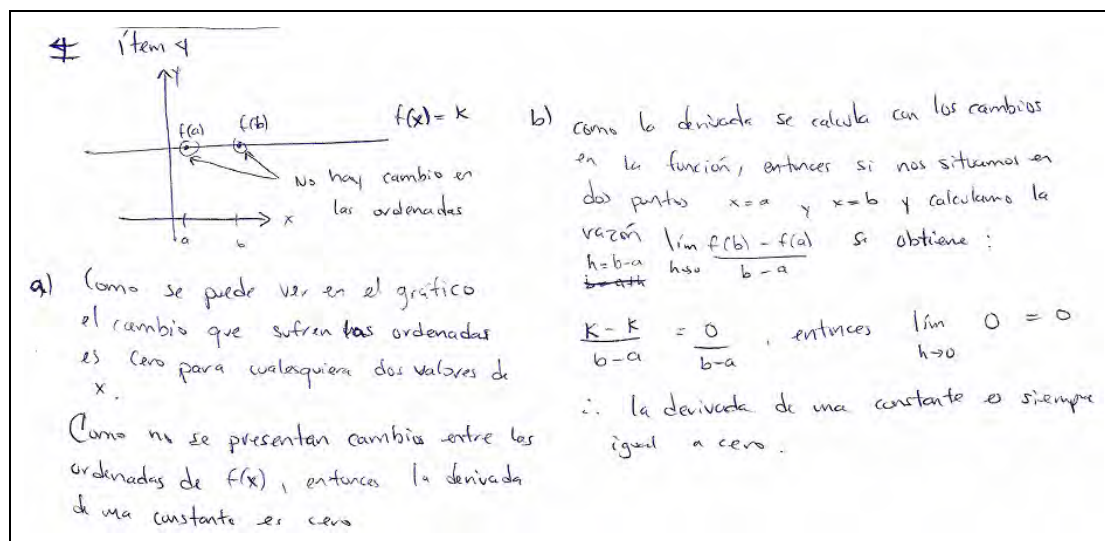 4 ítem 4
y
f(a) f(b) f(x) = k
No hay cambio en
las ordenadas
x
a b
a) Como se puede ver en el gráfico
el cambio que sufren las ordenadas
es cero para cualesquiera dos valores de
x.
Como no se presentan cambios entre las
ordenadas de f(x), entonces la derivada
de una constante es cero
b) como la derivada se calcula con los cambios
en la función, entonces si nos situamos en
dos puntos x=a y x=b y calculamo la
razón lím f(b) - f(a) se obtiene :
h=b-a h→0 b-a
b=a+h
K-K = 0 , entonces lím 0 = 0
b-a b-a h→0
∴ la derivada de una constante es siempre
igual a cero.